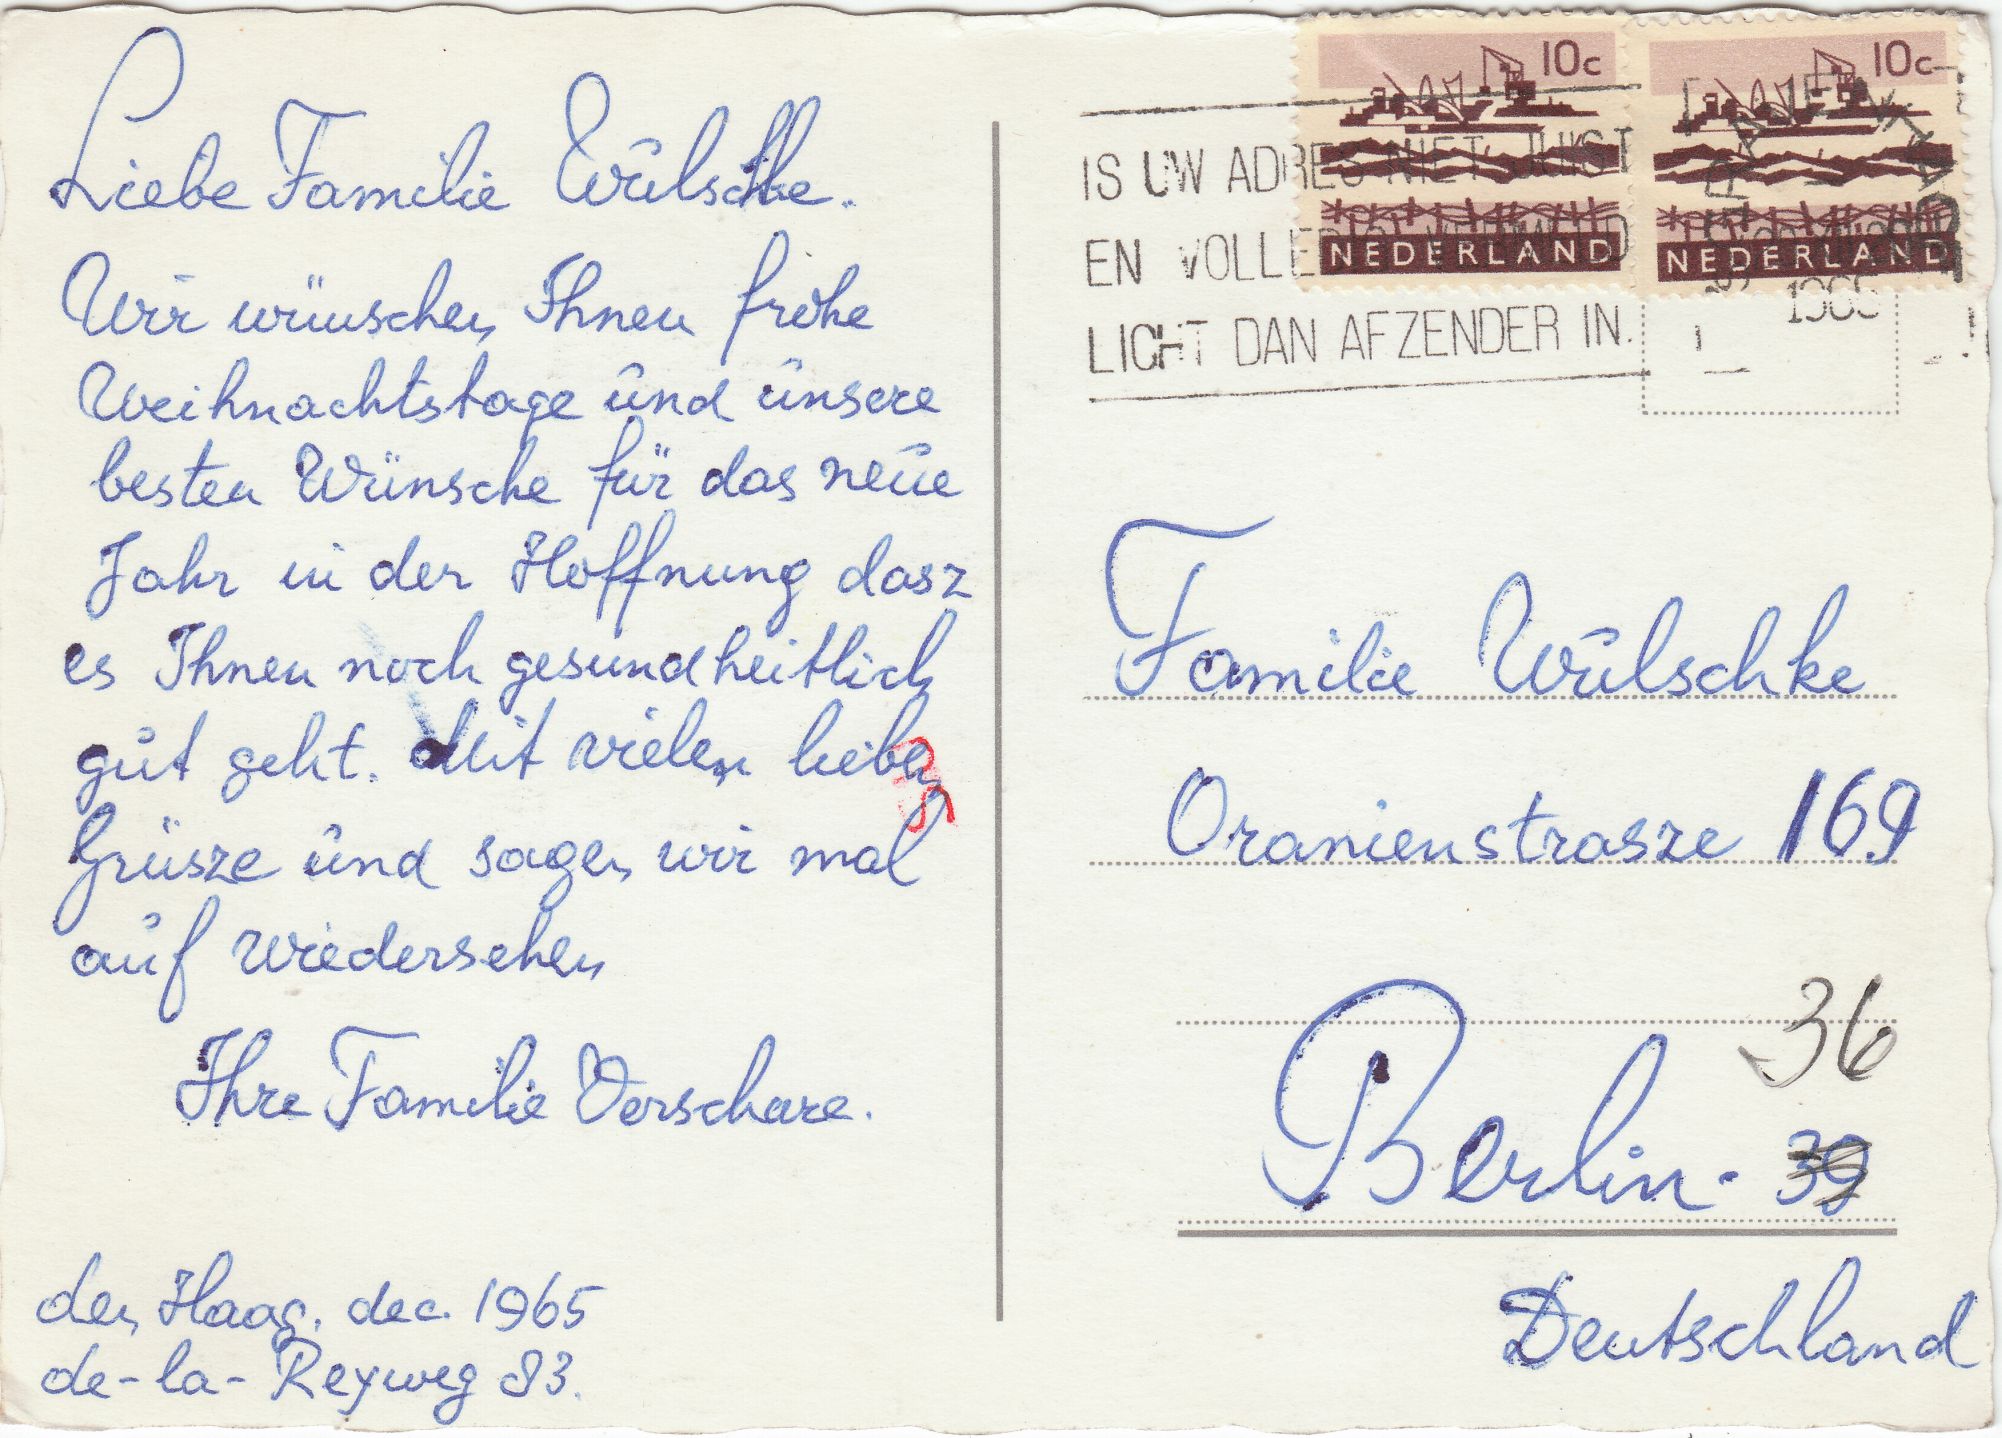 Liebe Familie Wülschke.
Wir wünschen Ihnen frohe
Weihnachtstage und unsere
besten Wünsche für das neue
Jahr in der Hoffnung dasz
es Ihnen noch gesundheitlich
gut geht. Mit vielen lieben
Grüsze und sagen wir mal
auf wiedersehen
Ihre Familie Verschare.
den Haag. dec. 1965
de-la-Reyweg 83.
10c
10c
NEDERLAND
NEDERLAND
IS UW ADRES NIET JUIST
EN VOLLEDIG VERMELD
LICHT DAN AFZENDER IN.
1965
Familie Wülschke
Oranienstrasze 169
36
Berlin - 39
Deutschland